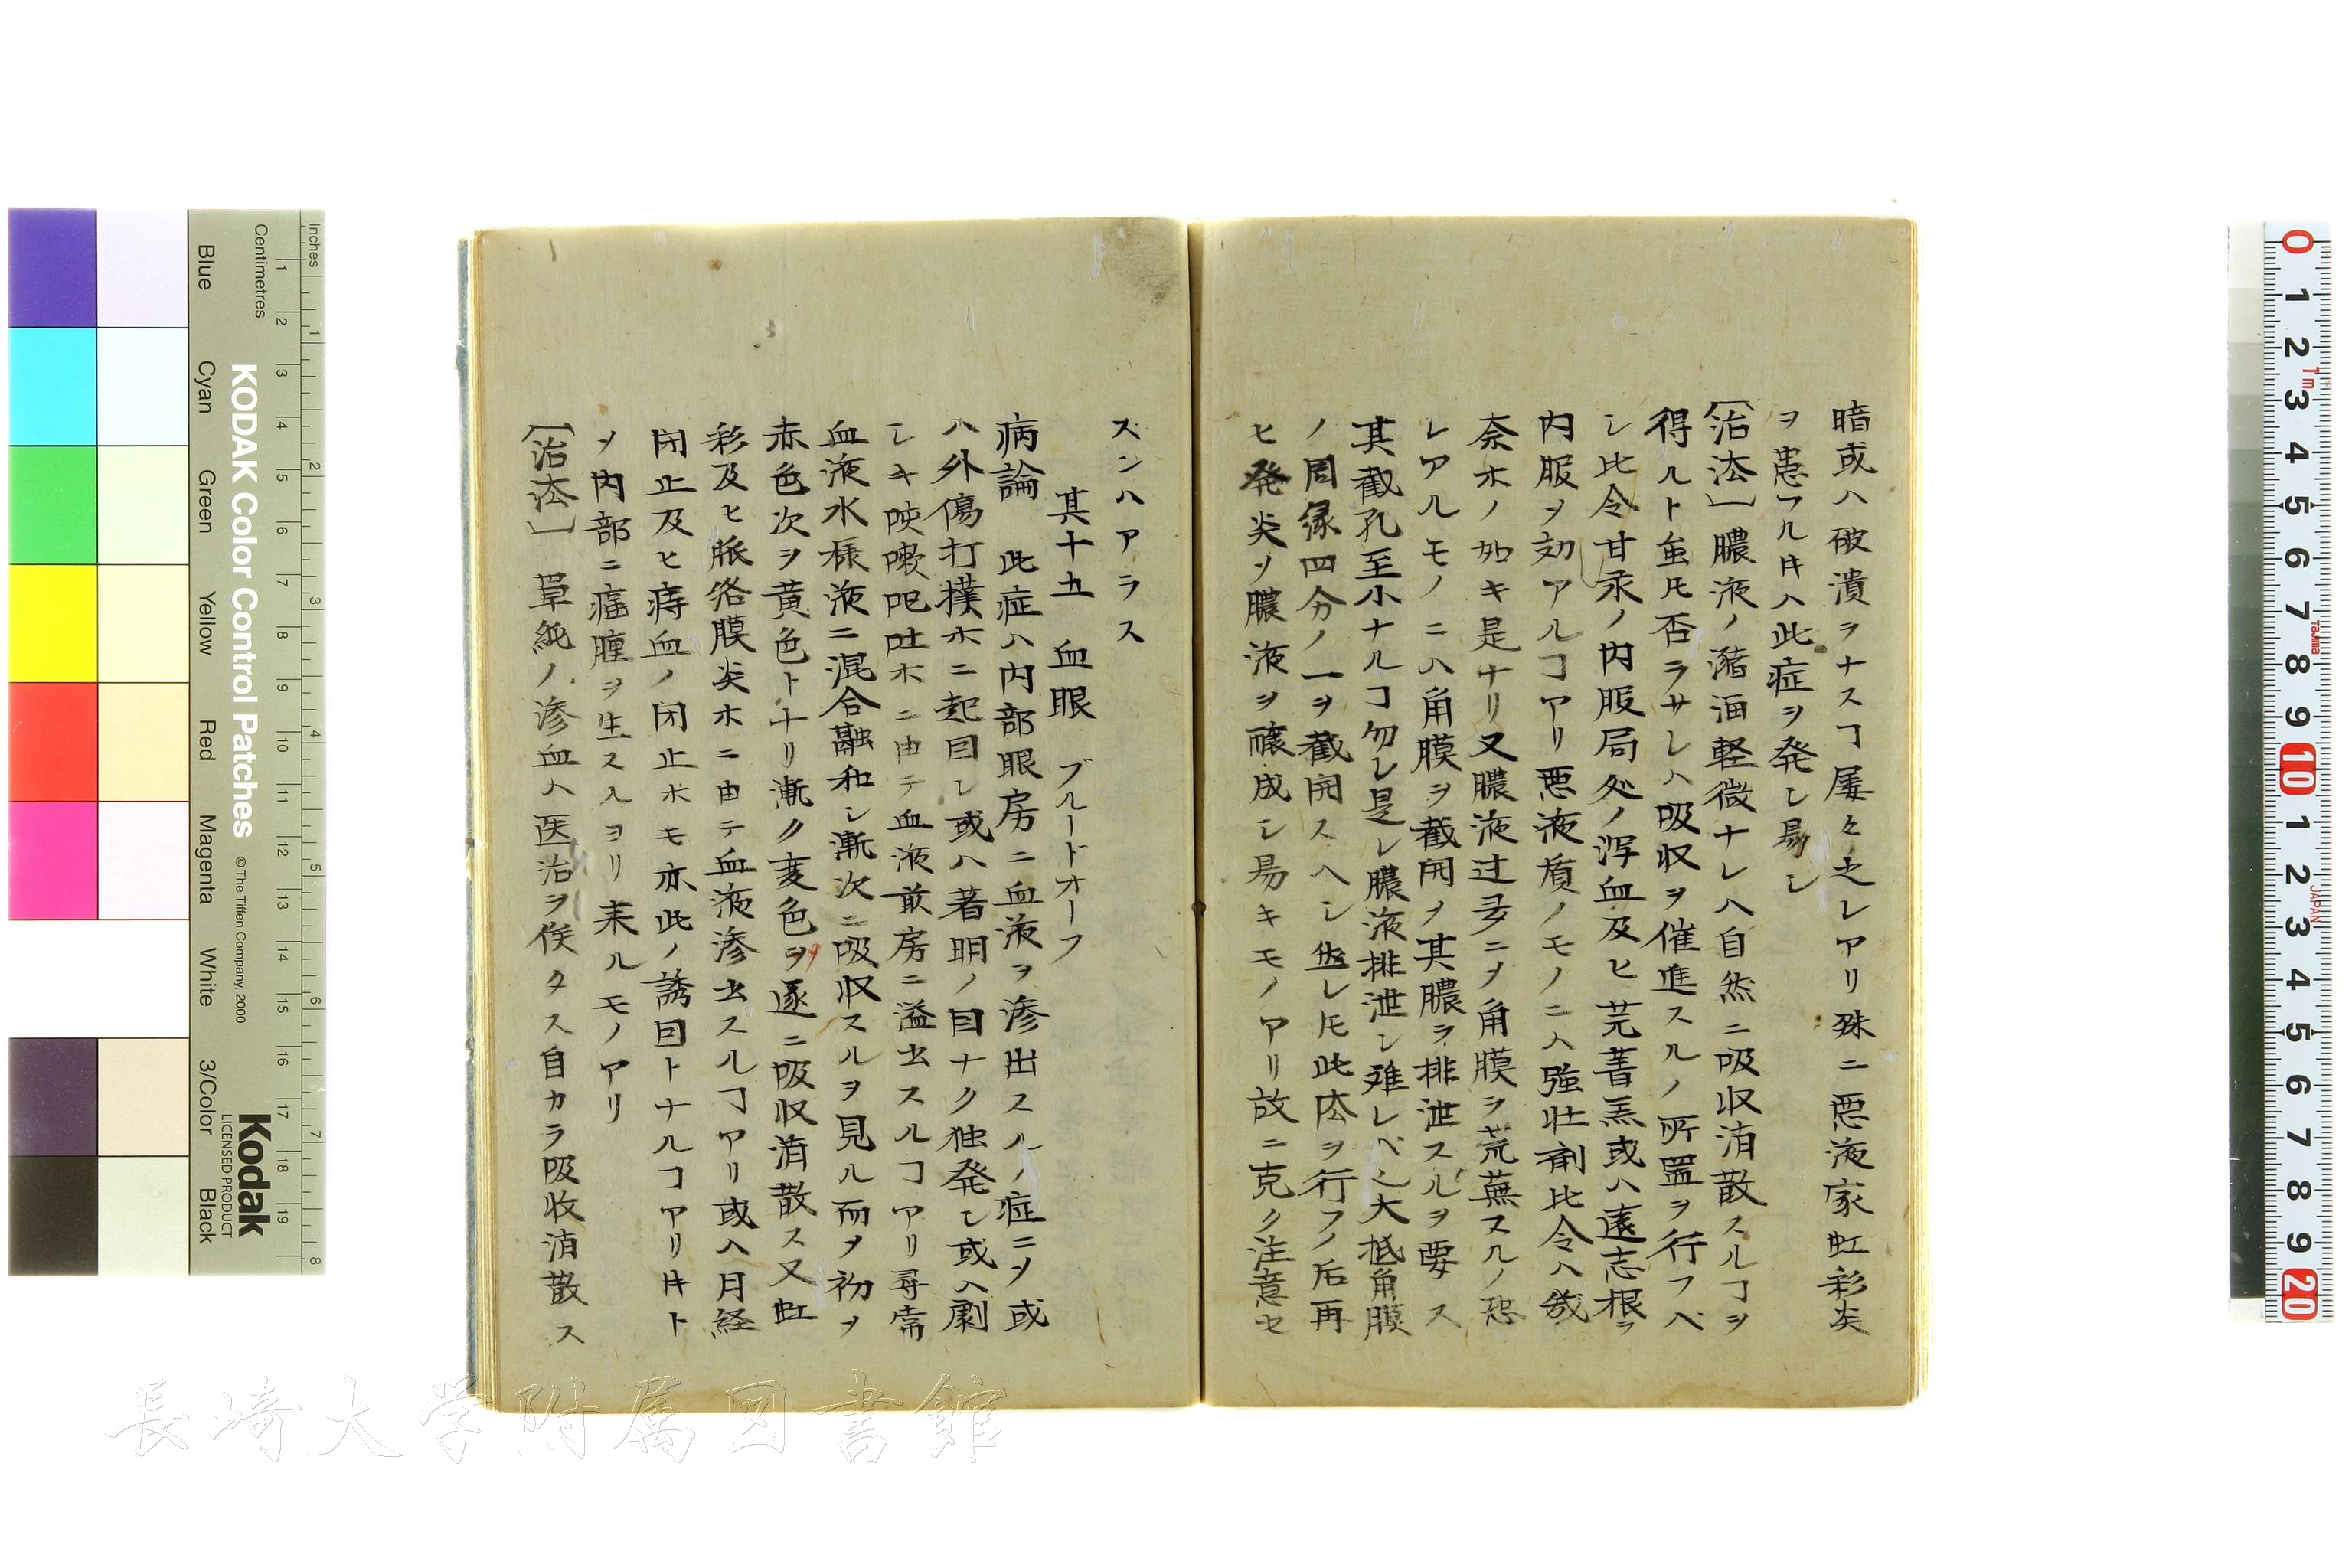 暗或ハ破潰ヲナスヿ屡々之レアリ殊ニ悪液家虹彩炎
ヲ患フル寸ハ此症ヲ発シ易シ
〔治法〕膿液ノ瀦溜軽微ナレハ自然ニ吸収消散スルヿヲ
得ルト虽𪜈否ラサレハ吸収ヲ催進スルノ所置ヲ行フベ
シ比令甘汞ノ内服局処ノ瀉血及ヒ芫菁膏或ハ遠志根ヲ
内服ヲ効アルヿアリ悪液質ノモノニハ強壮剤比令ハ幾
奈ホノ如キ是ナリ又膿液过多ニ〆角膜ヲ荒蕪スルノ恐
レアルモノニハ角膜ヲ截開〆其膿ヲ排泄スルヲ要ス
其截孔至小ナルヿ勿レ是レ膿液排泄シ難レベシ大抵角膜
ノ周縁四分ノ一ヲ截開スヘシ然レ𪜈此法ヲ行フノ后再
ヒ発炎〆膿液ヲ醸成シ易キモノアリ故ニ克ク注意セ
スンハアラス
其十五 血眼 ブルードオーフ
病論 此症ハ内部眼房ニ血液ヲ滲出スルノ症ニ〆或
ハ外傷打撲ホニ起因シ或ハ著明ノ因ナク独発シ或ハ劇
シキ咳嗽呕吐ホニ由テ血液前房ニ溢出スルヿアリ尋常
血液水様液ニ混合融和シ漸次ニ吸収スルヲ見ル而〆初メ
赤色次ヲ黄色トナリ漸ク変色〆遂ニ吸収消散ス又虹
彩及ヒ脈絡膜炎ホニ由テ血液滲出スルヿアリ或ハ月経
閉止及ヒ痔血ノ閉止ホモ亦此ノ誘因トナルヿアリ寸ト
〆内部ニ瘤腫ヲ生スルヨリ来ルモノアリ
〔治法〕 単純ノ滲血ハ医治ヲ俟タス自カラ吸收消散ス
KODAK Color Control Patches
©The Tiffen Company, 2000
Kodak
LICENSED PRODUCT
Inches
Centimetres
Blue
Cyan
Green
Yellow
Red
Magenta
White
3/Color
Black
長崎大学附属図書館